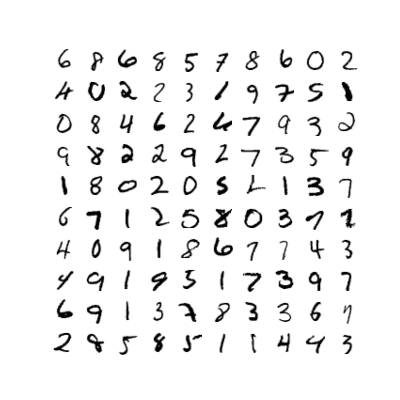 6 8 6 8 5 7 8 6 0 2
4 0 2 2 3 1 9 7 5 1
0 8 4 6 2 4 7 9 3 2
9 8 2 2 9 2 7 3 5 9
1 8 0 2 0 5 1 3 7
6 7 1 2 5 8 0 3 7 1
4 0 9 1 8 6 7 7 4 3
4 9 1 9 5 1 7 3 9 7
6 9 1 3 7 8 3 3 6 7
2 8 5 8 5 1 1 4 4 3